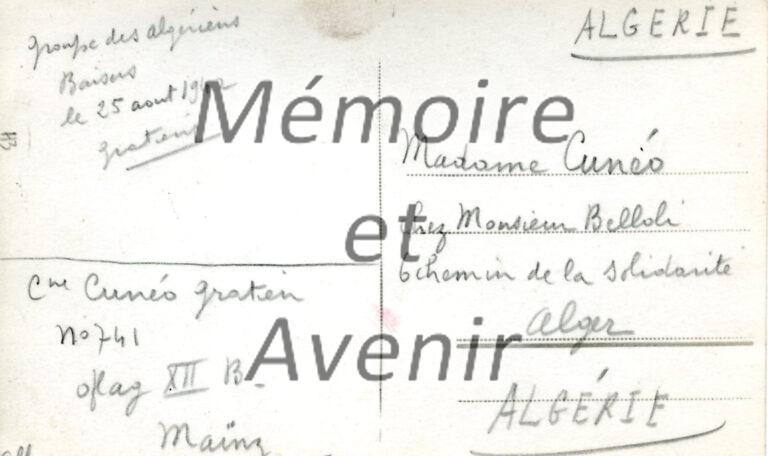 groupe des algériens
Baisers
le 25 aout 1942
gratien
Cne Cunéo gratien
n° 741
oflag XII B.
Maïnz
ALGERIE
Madame Cunéo
chez Monsieur Belloli
6 chemin de la solidarité
Alger
ALGÉRIE
Mémoire
et
Avenir